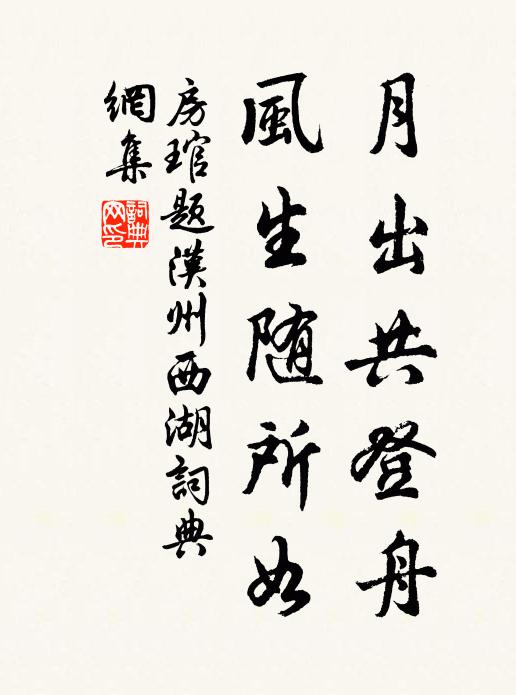 月出共登舟
風生随所如
房琯题漢州西湖詞典
網集
詞典
网印